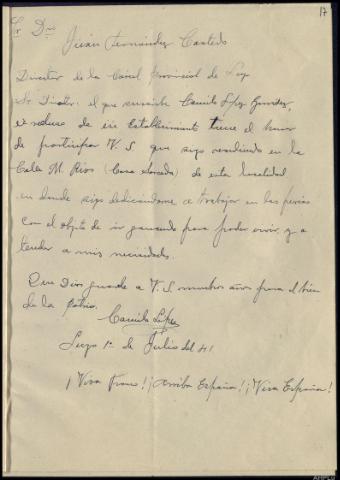 17
Sr Dn
Juan Fernández
Director de la Cárcel Provincial de Lugo
Sr Director: el que suscribe Camilo López
ex recluso de ese Establecimiento tiene el honor
de participar V. S que sigo residiendo en la
Calle M. Rios (Casa ) de esta localidad
en donde sigo dedicandome a trabajar en las ferias
con el objeto de ir ganando para poder vivir y a
tender a mis necesidades.
Que Dios guarde a V. S muchos años para el bien
de la Patria.
Camilo López
Lugo 1º de Julio del 41
¡Viva Franco! ¡Arriba España! ¡Viva España!
AHPLu